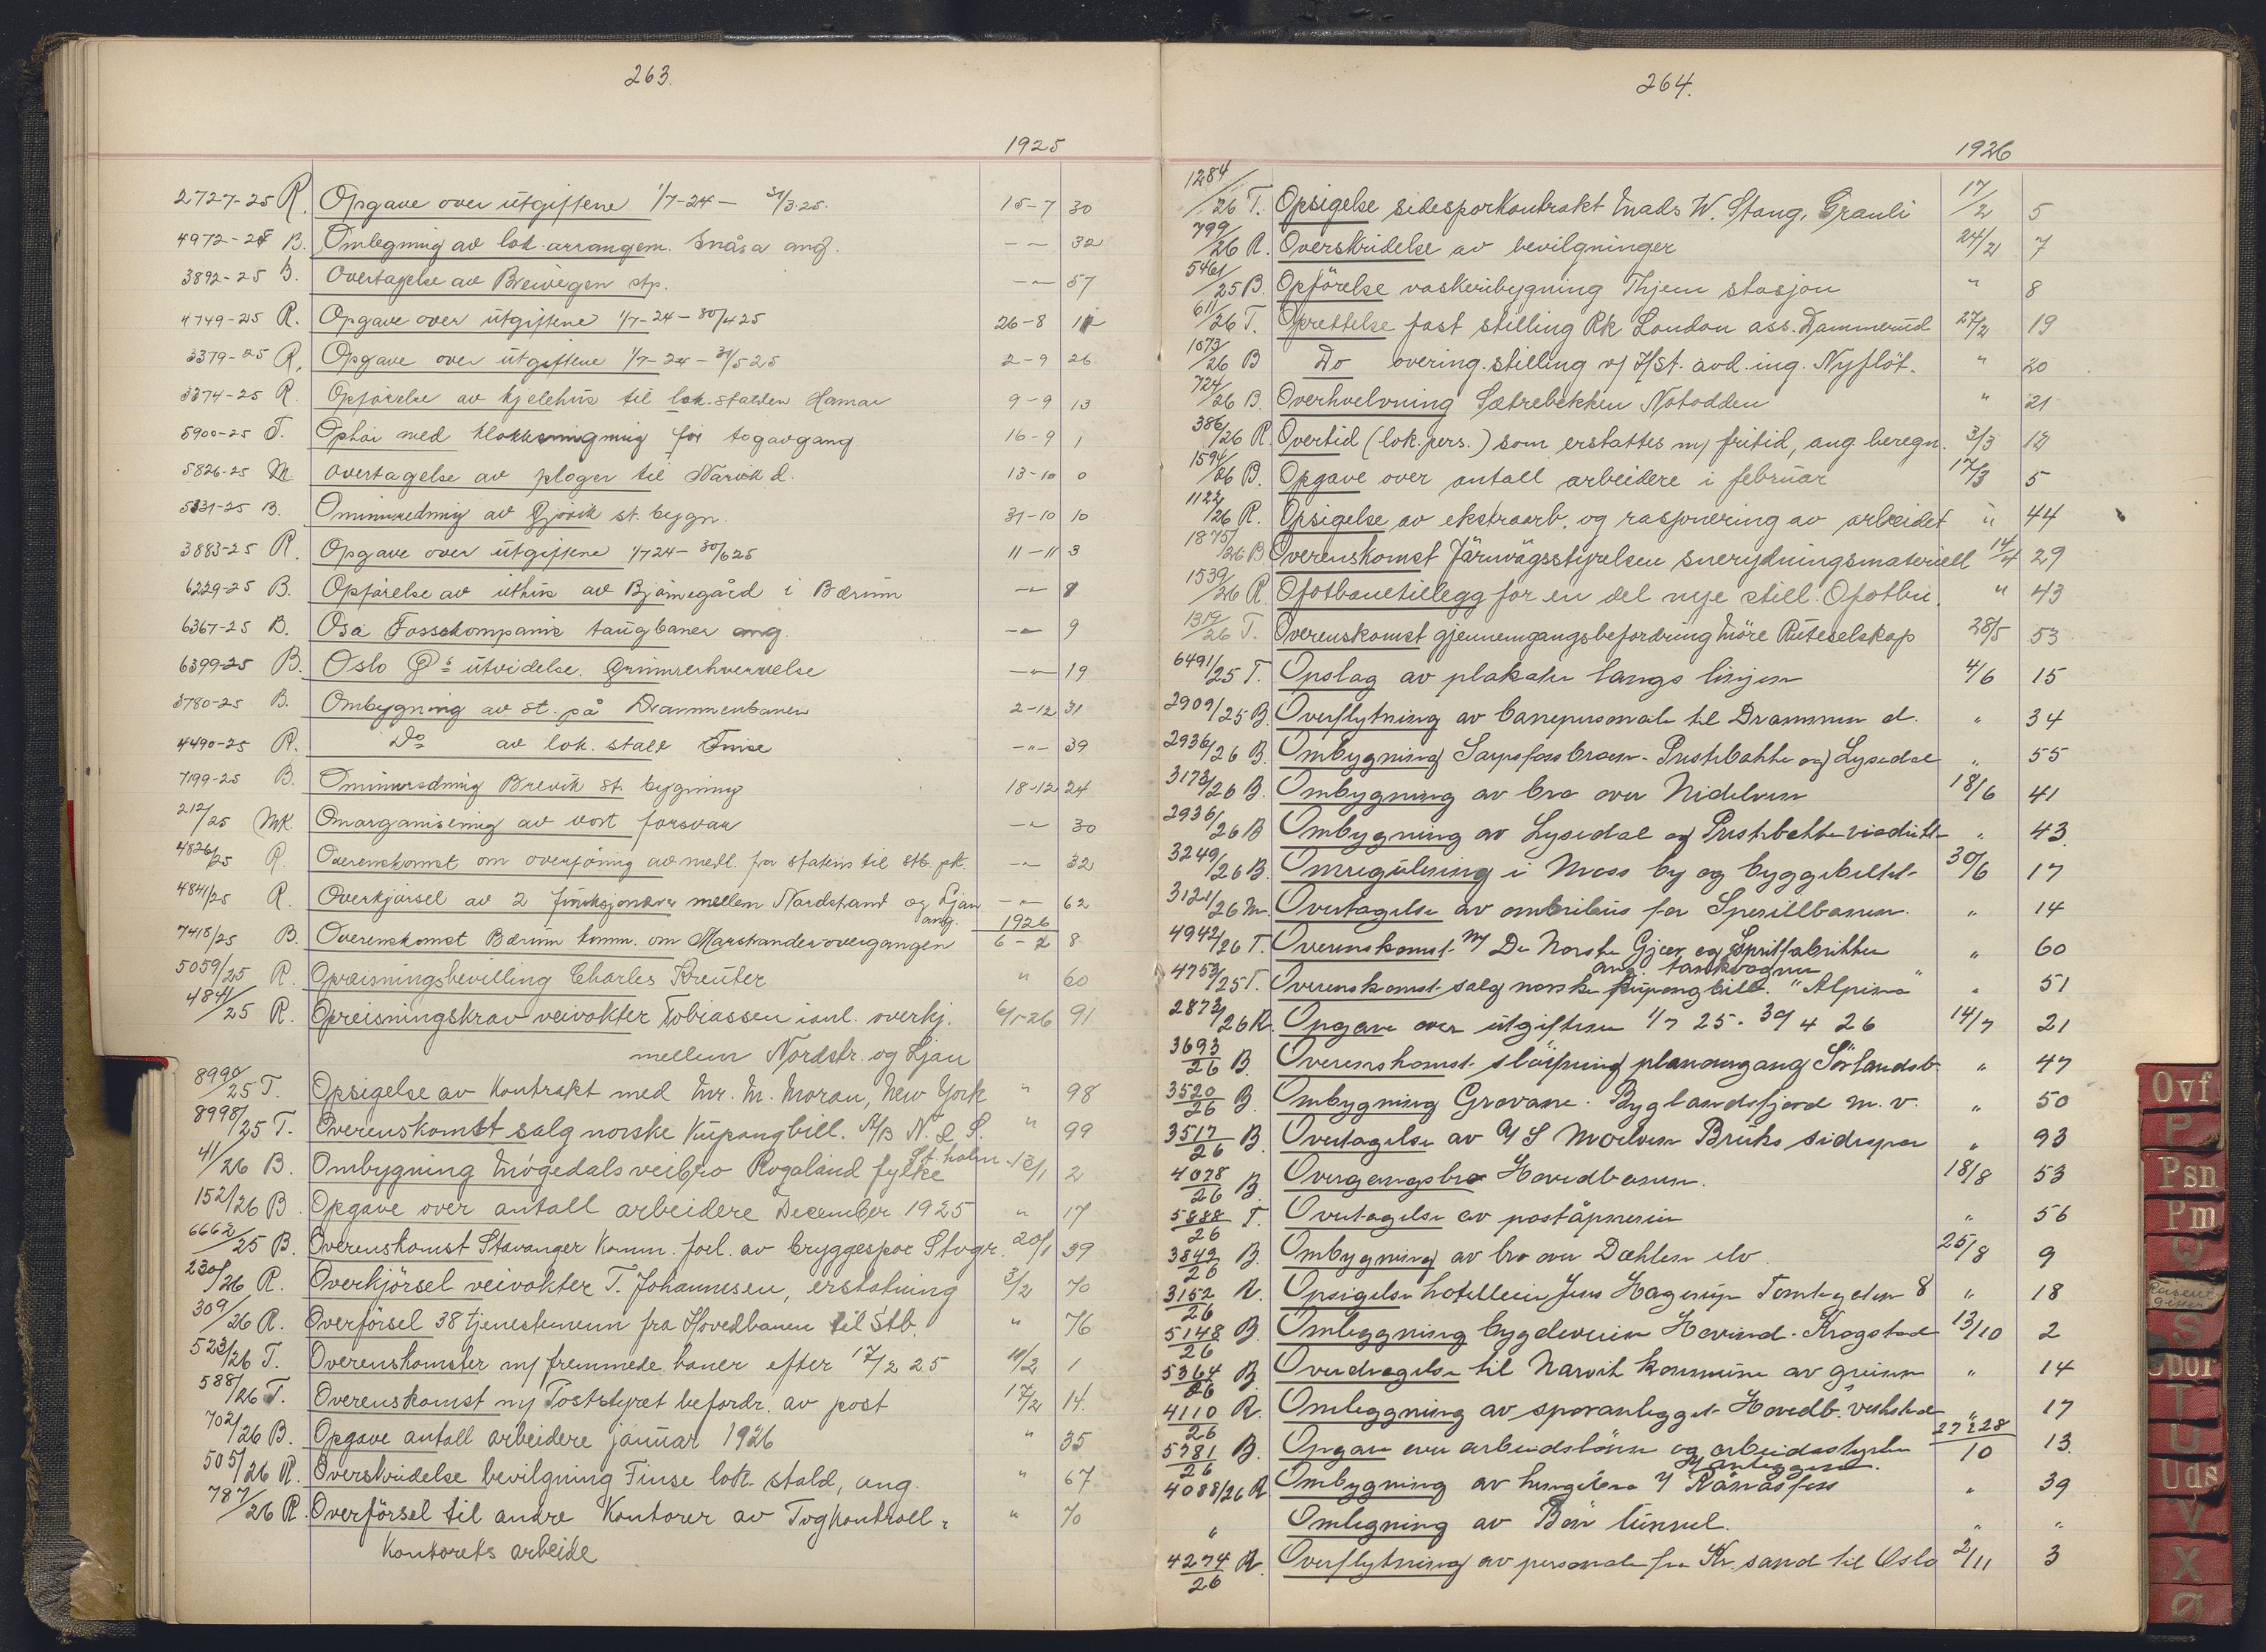 263.
1925
2727-25 R. Opgave over utgiftene 1/7-24 — 31/3 25. 15-7 30
4972-24 B. Omlegning av lok. arrangem. Snåsa ang. — — 32
3892-25 B. Overtagelse av Breivegen stp. — " — 57
4749-25 R. Opgave over utgiftene 1/7-24 — 30/4 25 26-8 11
3379-25 R. Opgave over utgiftene 1/7-24 — 31/5 25 2-9 26
3374-25 R. Opførelse av kjelehus til lok. stalden Hamar 9-9 13
5900-25 T. Ophør med klokkeringning før togavgang 16-9 1
5826-25 M. Overtagelse av ploger til Narvik d. 13-10 0
5331-25 B. Ominnredning av Gjøvik st. bygn. 31-10 10
3883-25 R. Opgave over utgiftene 1/7 24 — 30/6 25 11-11 3
6229-25 B. Opførelse av uthus av Bjørnegård i Bærum — " — 8
6367-25 B. Osa Fossekompanis taugbaner ang. — " — 9
6399-25 B. Oslo Ø= utvidelse. Grunnerhvervelse — " — 19
3780-25 B. Ombygning av st. på Drammenbanen 2-12 31
4490-25 R. Do av lok. stall Finse — " — 39
7199-25 B. Ominnredning Brevik st. bygning 18-12 24
212/25 MK. Omorganisering av vort forsvar — " — 30
4826/25 R. Overenskomst om overføring av medl. fra statens til stb. pk. — " — 32
4841/25 R. Overkjørsel av 2 funksjonærer mellem Nordstrand og Ljan — " — 62
ang. 1926
7418/25 B. Overenskomst Bærum komm. om Marstrander-overgangen 6-2 8
5059/25 R. Opreisningsbevilling Charles Kreuter " 60
4841/25 R. Opreisningskrav veivokter Tobiassen ianl. overkj. 6/1-26 91
mellem Nordstr. og Ljan
8990/25 T. Opsigelse av Kontrakt med Mr. M. Moran, New York " 98
8998/25 T. Overenskomst salg norske Kupongbill. A/B N. & S. " 99
St. holm
41/26 B. Ombygning Mögedals veibro Rogaland fylke 13/1 2
152/26 B. Opgave over antall arbeidere December 1925 " 17
6662/25 B. Overenskomst Stavanger Komm. forl. av bryggespor Stvgr. 20/1 39
230/26 R. Overkjörsel veivokter T. Johannesen, erstatning 3/2 70
309/26 R. Overförsel 38 tjenestemenn fra Hovedbanen til Stb. " 76
523/26 T. Overenskomster m/ fremmede baner efter 17/2 25 10/2 1
588/26 T. Overenskomst m/ Poststyret befordr. av post 17/2 14.
702/26 B. Opgave antall arbeidere januar 1926 " 35
505/26 R. Overskridelse bevilgning Finse lok. stald, ang. " 67
787/26 R. Overförsel til andre Kontorer av Togkontroll-
" 70
Kontorets arbeide
264.
1926
1284/26 T. Opsigelse sidesporkontrakt Mads W. Stang, Grauli 17/2 5
799/26 R. Overskridelse av bevilgninger 24/2 7
5461/25 B. Opförelse vaskeribygning Thjem stasjon " 8
611/26 T. Oprettelse fast stilling Rk London ass. Dammerud 27/2 19
1073/26 B Do overing. stilling v/ Hst. avd. ing. Nyflöt. " 20
724/26 B. Overhvelvning Sætrebekken Notodden " 21
386/26 R. Overtid (lok. pers.) som erstattes m/ fritid, ang beregn. 3/3 12
1594/26 B. Opgave over antall arbeidere i februar 17/3 5
1122/26 R. Opsigelse av ekstraarb. og rasjonering av arbeidet " 44
1875/26 B Overenskomst Järnvägsstyrelsen snerydningsmateriell 14/4 29
1539/26 R. Ofotbanetillegg for en del nye still. Ofotbn. " 43
1319/26 T. Overenskomst gjennemgangsbefordring Möre Ruteselskap 28/5 53
6491/25 T. Opslag av plakater langs linjen 4/6 15
2909/25 B. Overflytning av banepersonale til Drammen d. " 34
2936/26 B. Ombygning Sarpsfossbroen - Prestebakke og Lysedal " 55
3173/26 B. Ombygning av bro over Nidelven 18/6 41
2936/26 B Ombygning av Lysedal og Prestebakke viadukter " 43
3249/26 B. Omregulering i Moss by og byggebeltet 30/6 17
3121/26 M. Overtagelse av omnibus for Sperillbanen. " 14
4942/26 T. Overenskomst m/ De Norske Gjær og Spritfabrikker " 60
ang. tankvogner
4753/25 T. Overenskomst salg norske Kupongbill. "Alpina" " 51
2873/26 R. Opgave over utgiftene 1/7 25 - 30/4 26 14/7 21
3693/26 B. Overenskomst sløifning planovergang Sörlandsb. " 47
3520/26 B. Ombygning Grovane - Byglandsfjord m. v. " 50
3517/26 B. Overtagelse av A/S Moelven Bruks sidespor " 93
4078/26 B. Overgangsbro Hovedbanen. 18/8 53
5888/26 T. Overtagelse av poståpnerier " 56
3849/26 B. Ombygning av bro over Dæhlen elv 25/8 9
3152/26 R. Opsigelse hotelleier Jens Hagerup Tomtegaten 8 " 18
5148/26 B. Omleggning bygdeveien Hovind - Krogstad 13/10 2
5364/26 B. Overdragelse til Narvik kommune av grunn " 14
4110/26 R. Omleggning av sporanlegget Hovedb. verksted " 17
27 & 28
5781/26 B. Opgave over arbeidslönn og arbeidsstyrke 10 13.
v/ anleggene.
4088/26 R Ombygning av hengebro v/ Rånåsfoss " 39
" Omlegning av Bön tunnel. " "
4274/26 R. Overflytning av personale fra Kr. sand til Oslo 2/11 3
Ovf
P
Psn
Pm
Q
S
Spor
T
U
Uds
V
X
Ø